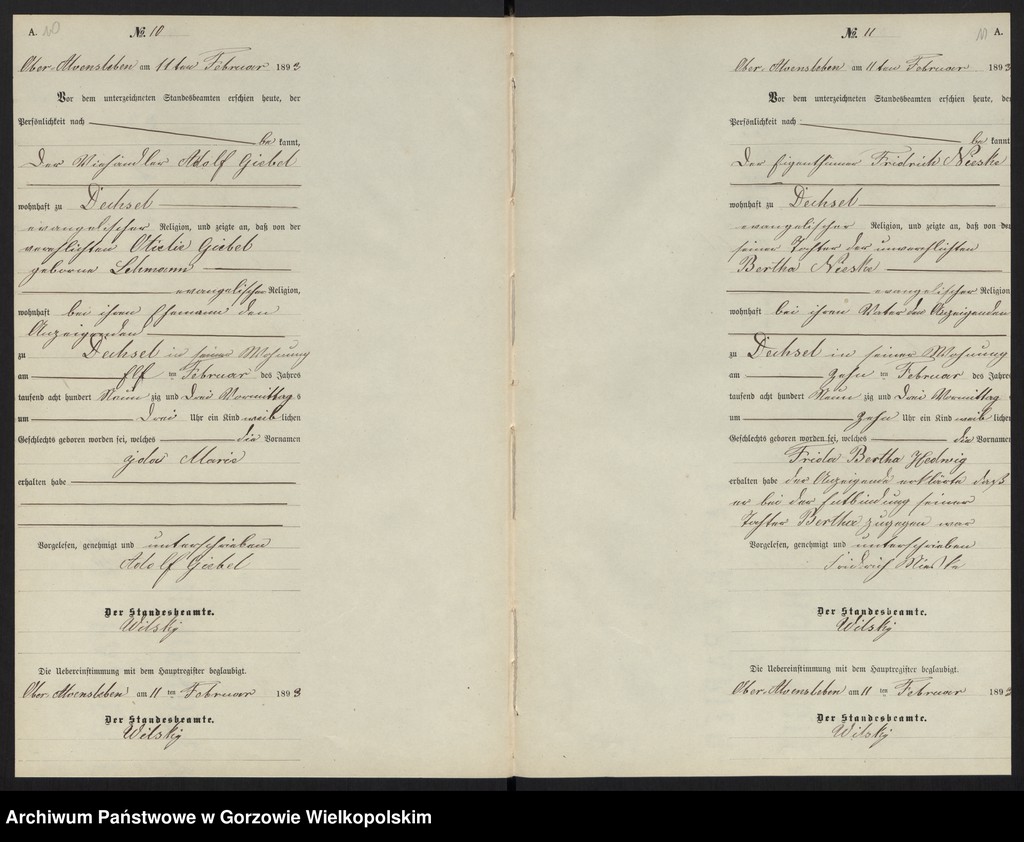 A. 10
№. 10
Ober-Alvensleben am 11ten Februar 1893
Vor dem unterzeichneten Standesbeamten erschien heute, der
Persönlichkeit nach
be kannt,
Der Viehändler Adolf Giebel
wohnhaft zu Dechsel
evangelischer Religion, und zeigte an, daß von der
verehlichten Otielie Giebel
geborne Lehmann
evangelischer Religion,
wohnhaft bei ihren Ehemann den
Anzeigenden
zu Dechsel in seiner Wohnung
am elf ten Februar des Jahres
tausend acht hundert Neun zig und Drei Vormittag s
um Drei Uhr ein Kind weib lichen
Geschlechts geboren worden sei, welches die Vornamen
Ida Marie
erhalten habe
Vorgelesen, genehmigt und unterschrieben
Adolf Giebel
Der Standesbeamte.
Wilsky
Die Uebereinstimmung mit dem Hauptregister beglaubigt.
Ober-Alvensleben am 11 ten Februar 1893
Der Standesbeamte.
Wilsky
№. 11
11 A.
Ober-Alvensleben am 11ten Februar 1893
Vor dem unterzeichneten Standesbeamten erschien heute, de
Persönlichkeit nach
be kannt,
Der Eigenthümer Fridrich Nieske
wohnhaft zu Dechsel
evangelischer Religion, und zeigte an, daß von der
seiner Tochter der unverehlichten
Bertha Nieske
evangelischer Religion
wohnhaft bei ihren Vater den Anzeigenden
zu Dechsel in seiner Wohnung
am Zehn ten Februar des Jahres
tausend acht hundert Neun zig und Drei Vormittag
um Zehn Uhr ein Kind weib lichen
Geschlechts geboren worden sei, welches die Vornamen
Frida Bertha Hedwig
erhalten habe der Anzeigende erklärte daß
er bei der Entbindung seiner
Tochter Bertha zugegen war
Vorgelesen, genehmigt und unterschrieben
Friedrich Nieske
Der Standesbeamte.
Wilsky
Die Uebereinstimmung mit dem Hauptregister beglaubigt.
Ober-Alvensleben am 11 ten Februar 1893
Der Standesbeamte.
Wilsky
Archiwum Państwowe w Gorzowie Wielkopolskim